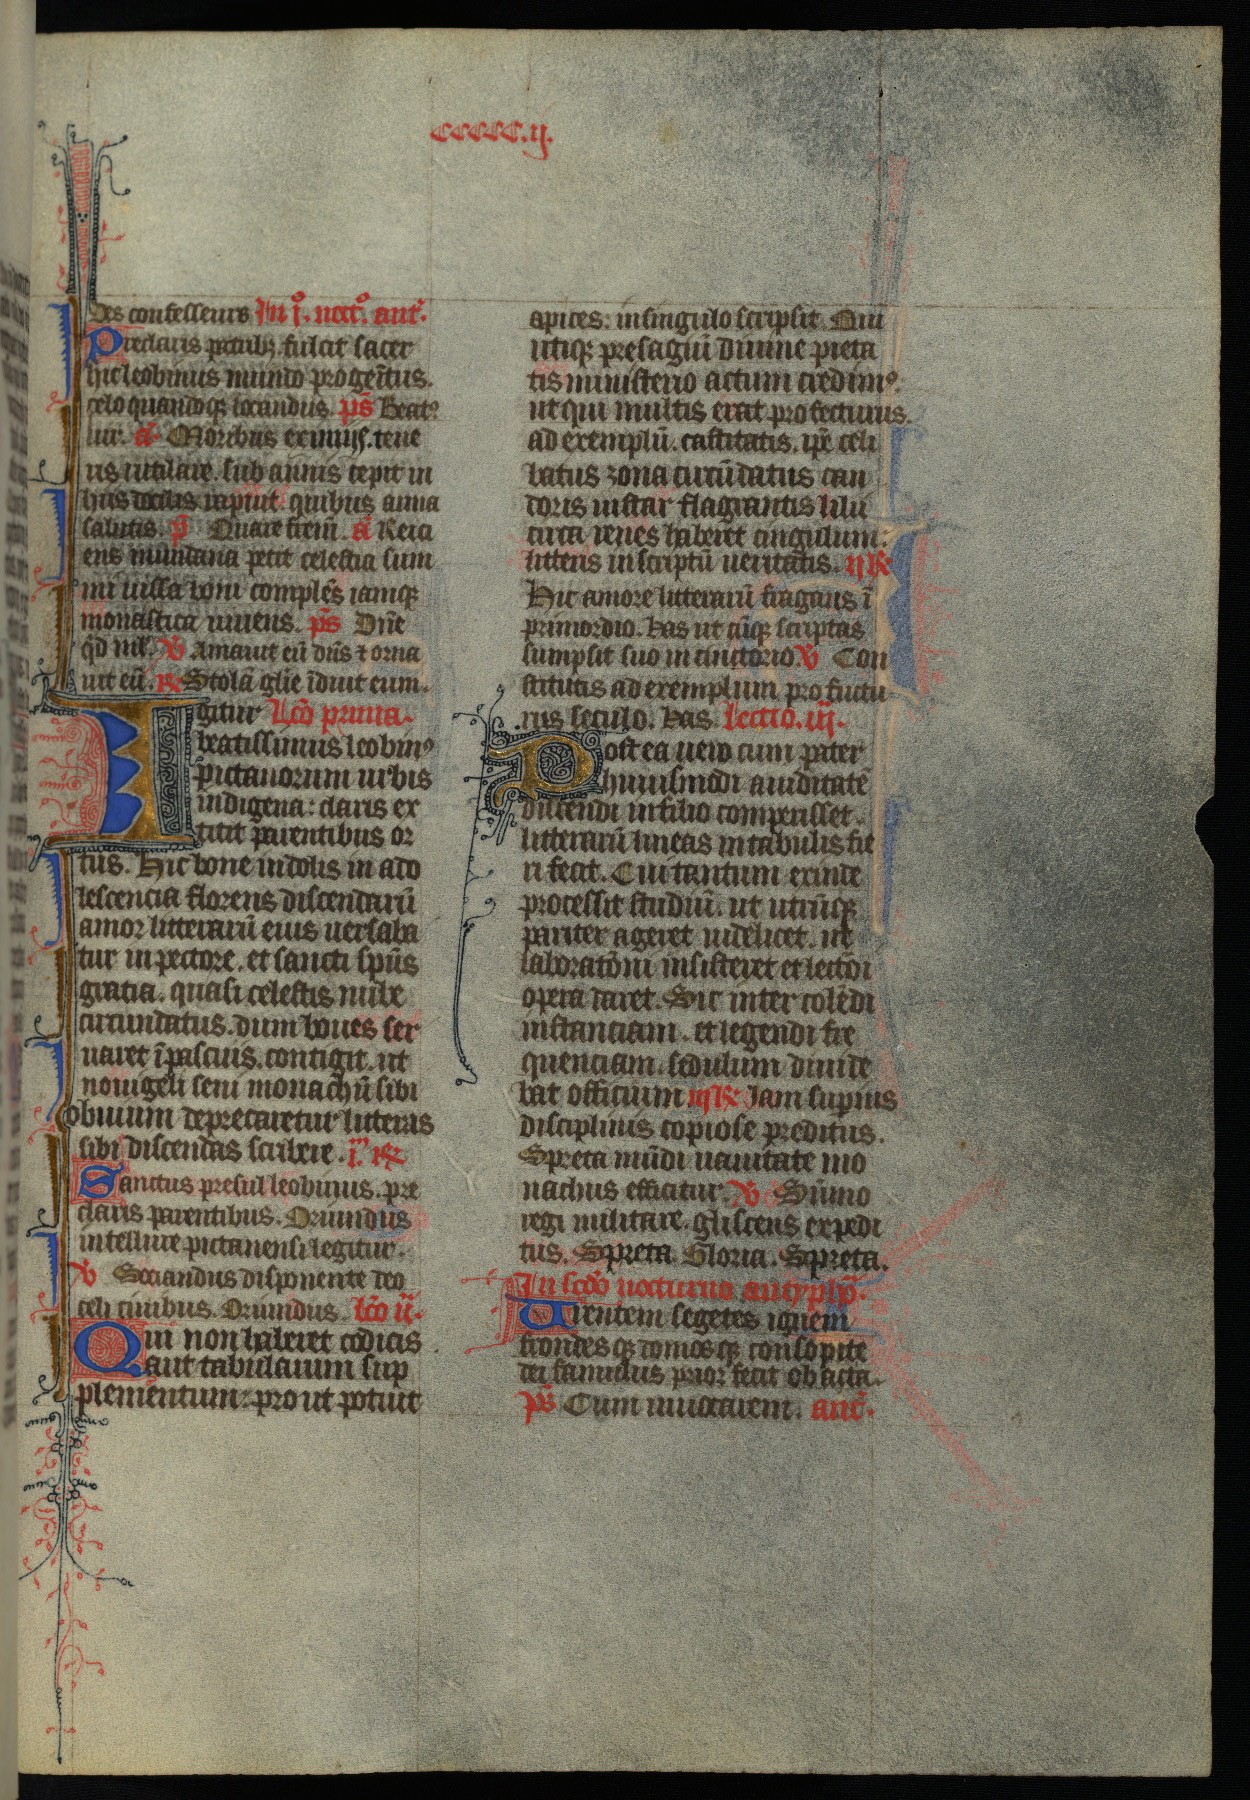 CCCCC.ij.
Des confesseurs In .i. noct. ant.
Preclaris patribus fulcit sacer
hic leobinus mundo progenitus.
celo quandoque locandus. ps Beatus
uir. a Moribus eximijs. tene
ris rutilare. sub annis cepit in
huis docilis rapuit quibus arma
salutis. p Quare frem. a Reici
ens mundana petit celestia sum
mi uissa boni complens iamque
monastica uiuens. ps Dne
qd ml. v Amauit eu dns et orna
uit eu. R Stola glie iduit eum.
Igitur Lco prima.
beatissimus leobinus
pictauorum urbis
indigena: claris ex
titit parentibus or
tus. Hic bone indolis in ado
lescencia florens discendaru
amor litteraru eius uersaba
tur in pectore. et sancti spus
gratia. quasi celestis nube
circundatus. dum boues ser
uaret i pascuis. contigit. ut
nouigeli seni monachu sibi
obuium deprecaretur litteras
sibi discendas scribere. i. R
Sanctus presul leobinus. pre
claris parentibus. Oriundus
intellure pictauensi legitur.
v Sociandus disponente deo
celi ciuibus. Oriundus. Lco ii.
Qui non haberet codicis
aut tabularum sup
plementum: prout potuit
apices: in singulo scripsit. Qui
utique presagiu diuine pieta
tis ministerio actum credimus.
ut qui multis erat profecturus.
ad exemplu. castitatis. ipe celi
batus zona circudatus can
doris instar flagrantis lilii
circa renes haberet cingulum:
litteris inscriptu ueritatis. ii R
Hic amore litteraru fragrans i
primordio. Has ut cuque scriptas
sumpsit suo in cinctorio v Con
stitutis ad exemplum pro futu
ris seculo. Has. Lectio. iii.
Postea uero cum pater
huiusmodi auiditate
discendi in filio comperisset.
litteraru lineas in tabulis fie
ri fecit. Cui tantum exinde
processit studiu. ut utruque
pariter ageret uidelicet. ut
laboratoni insisteret et lectoi
opera daret. Sic inter colendi
instanciam. et legendi fre
quenciam. sedulum diuide
bat officium iii R Iam supnis
disciplinis copiose preditus.
Spreta mudi uanitate mo
nachus efficitur. v Summo
regi militare. gliscens expedi
tus. Spreta Gloria. Spreta.
In scdo nocturno ant ps.
Urentem segetes ignem
frondesque comosque consopite
dei famulus prior fecit ob acta.
ps Cum inuocarem. ant.